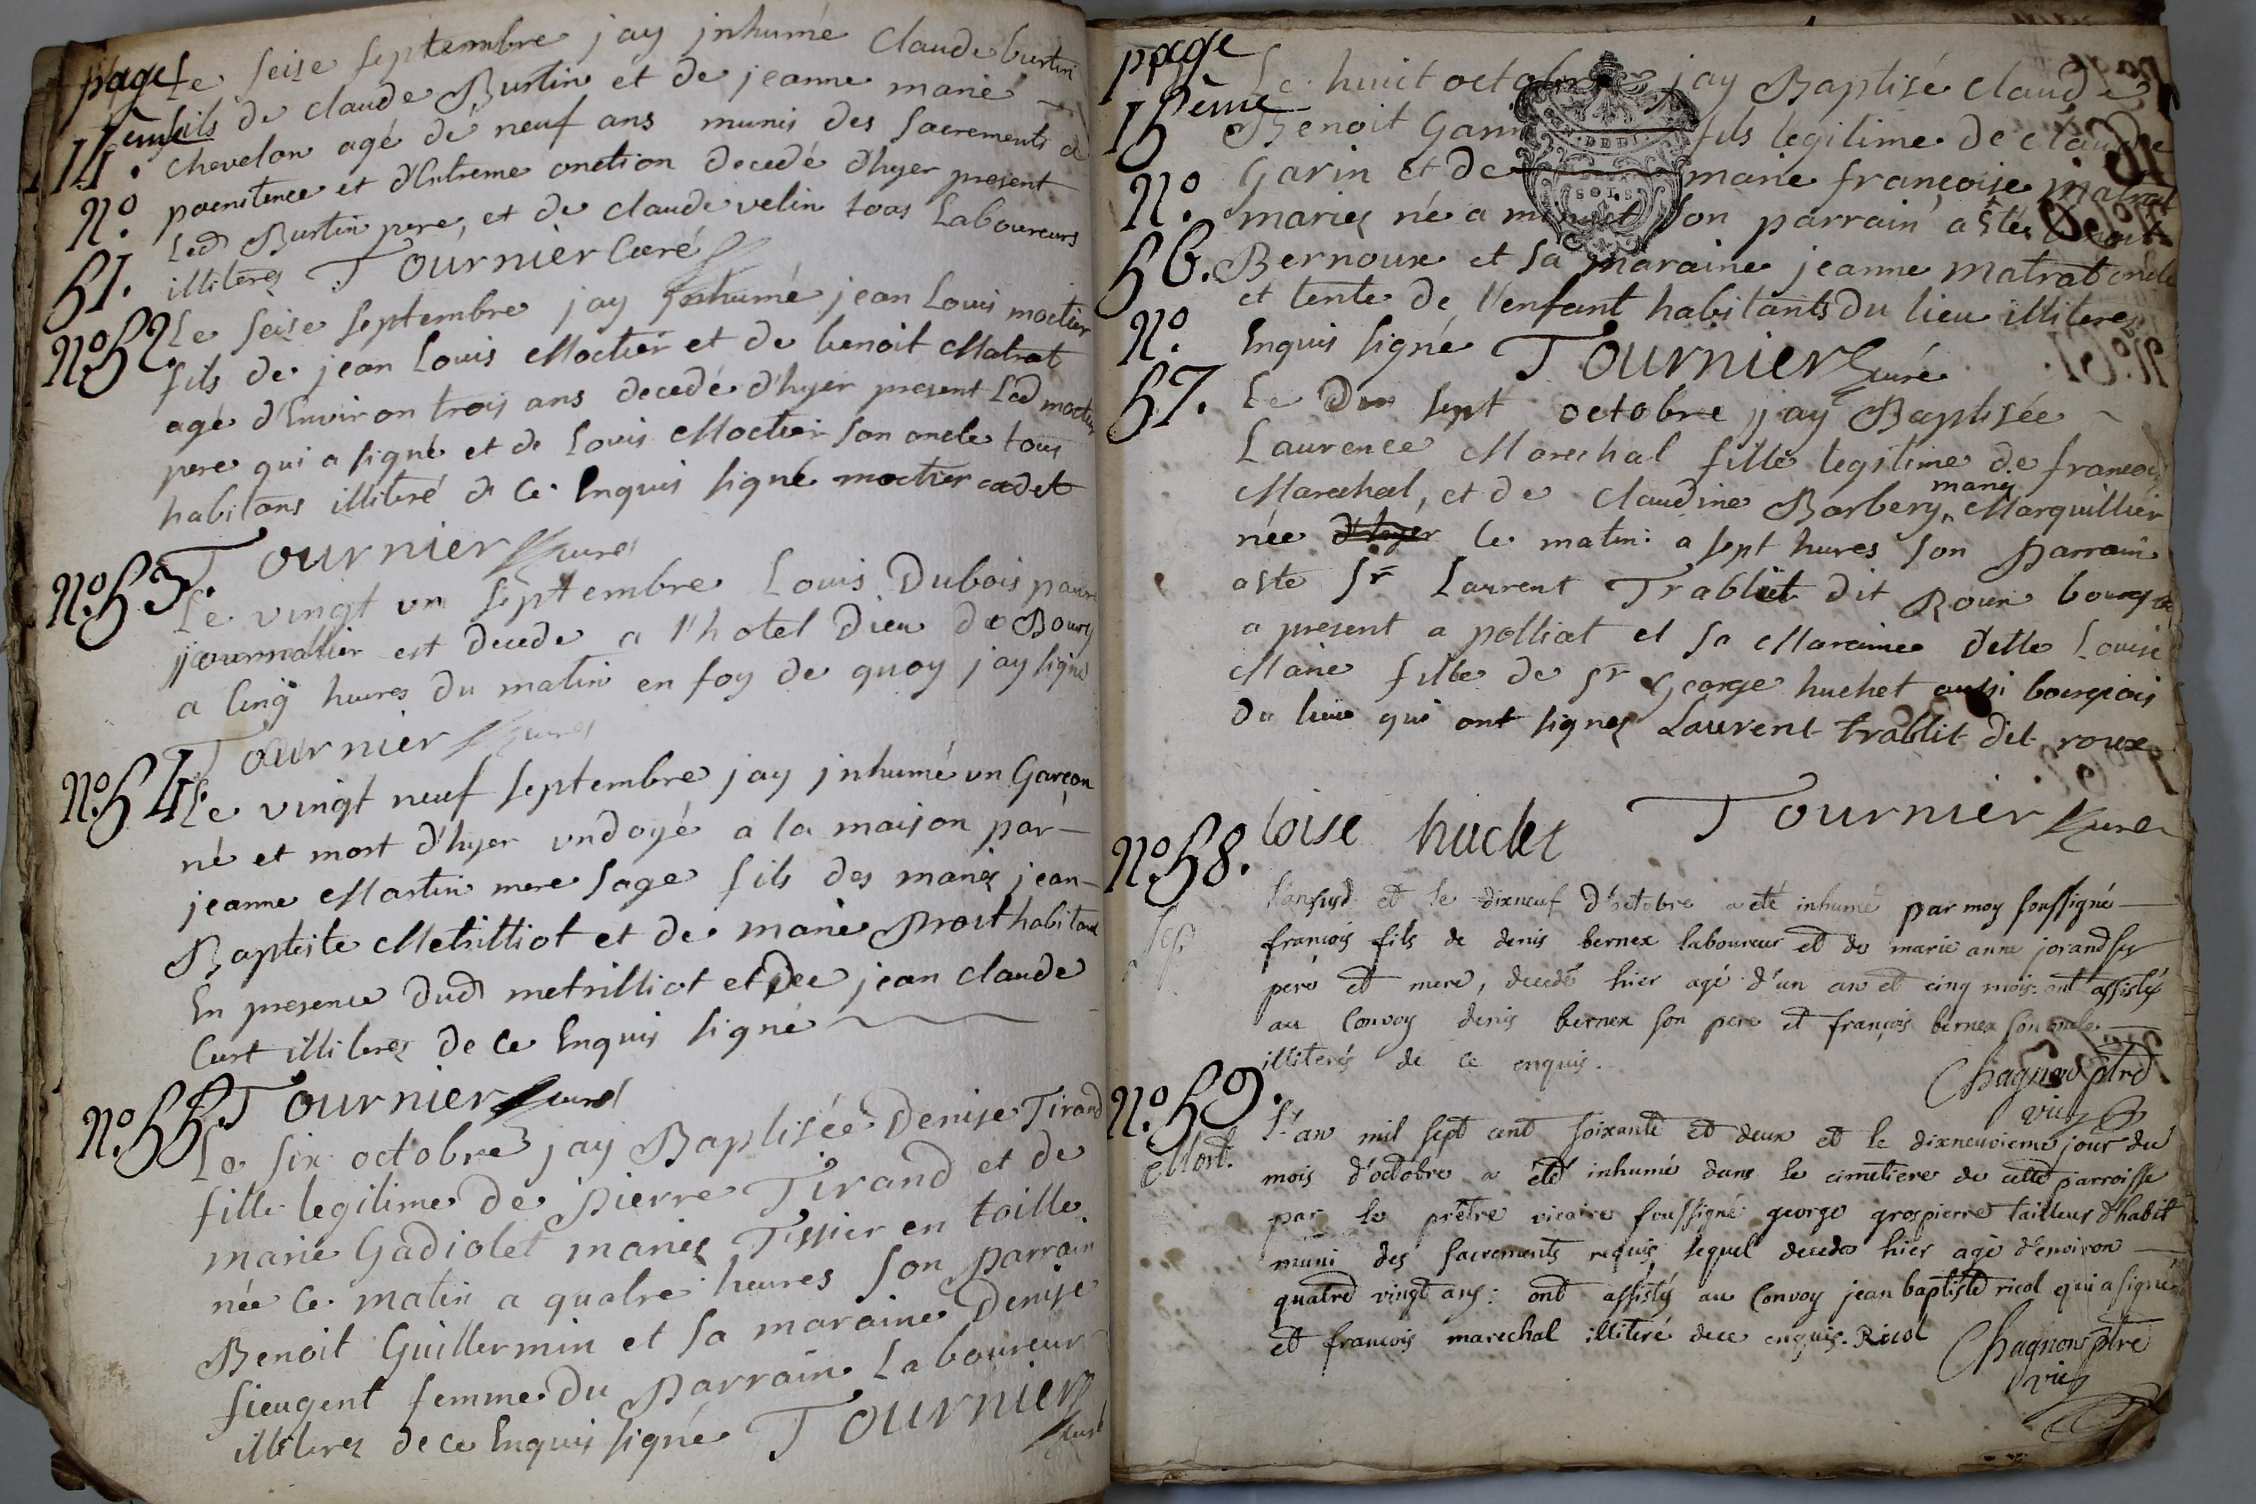 page
14.eme
Le seize septembre jay jnhumé Claude burtin
fils de claude Burtin et de jeanne marie
chevelon agé de neuf ans munis des sacrements de
N.o poenitence et d'Extreme onction decedé d'hyer present
51. Led Burtin pere, et de claude velin tous Laboureurs
illiteres Tournier Curé
N.o 52. Le seise septembre jay jnhumé jean Louis moctier
fils de jean Louis Moctier et de benoit Matrat
agé d'Environ trois ans decedé d'hyer present Led moctier
pere qui a signé et de Louis Moctier son oncle tous
habitans illiteré de Ce Enquis signé moctier cadet
Tournier Curé
N.o 53. Le vingt un septembre Louis Dubois pauvre
journallier est decede a l'hotel Dieu de Bourg
a Cinq hures du matin en foy de quoy jay signé
Tournier Curé
N.o 54. Le vingt neuf septembre jay jnhumé un Garçon
né et mort d'hyer undoyé a la maison par
jeanne Martin mere sage fils des mariés jean
Baptiste Metrilliot et de marie Prost habitans
En presence dud metrilliot et de jean claude
Curt illiteres de Ce Enquis signé
Tournier Curé
N.o 55. Le six octobre jay Baptisée Denise Tirand
fille legitime de pierre Tirand et de
marie Gadiolet mariés Tissier en toille
née Ce matin a quatre heures son parrain
Benoit Guillermin et sa maraine Denise
fieugent femme du parrain Laboureur
illiteres de ce Enquis signé Tournier
Curé
page
15.eme
Le huict octobre jay Baptisé claude
Benoit Garin fils legitime de claude
N.o Garin et de marie françoise matrat
mariés né a minuit son parrain a esté Benoit
56. Bernoux et sa maraine jeanne matrat oncle
et tente de l'enfant habitants du lieu illiteres
Enquis signé Tournier Curé
N.o
57. Le Dix sept octobre jay Baptisée
Laurence Marechal fille legitime de francois
Marechal, et de claudine Barbery mariés Marguillier
née d'hyer Ce matin a sept hures son parrain
a esté Sr Laurent Trablit dit Roux bourgois
a present a polliat et sa Maraine delle Louise
Marie fille de Sr George huchet aussi bourgois
du lieu qui ont signes Laurent trablit dit roux
loise huchet Tournier Curé
N.o 58.
L'an susd et le dixneuf d'octobre a eté inhumé par moy soussigné
françois fils de denis bernex laboureur et de marie anne jorand ses
pere et mere, decedé hier agé d'un an et cinq mois: ont assistés
au Convoy denis bernex son pere et françois bernex son oncle
illiterés de ce enquis.
Chagnon ptre
vic
N.o 59.
Mort.
L'an mil sept cent soixante et deux et le dixneuvieme jour du
mois d'octobre a eté inhumé dans le cimetiere de cette parroisse
par le prêtre vicaire soussigné george grospierre tailleur d'habit
muni des sacrements requis lequel deceda hier agé d'environ
quatre vingt ans: ont assistés au Convoy jean baptiste ricol qui a signé
et francois marechal illiteré de ce enquis. Ricol
Chagnon ptre
vic